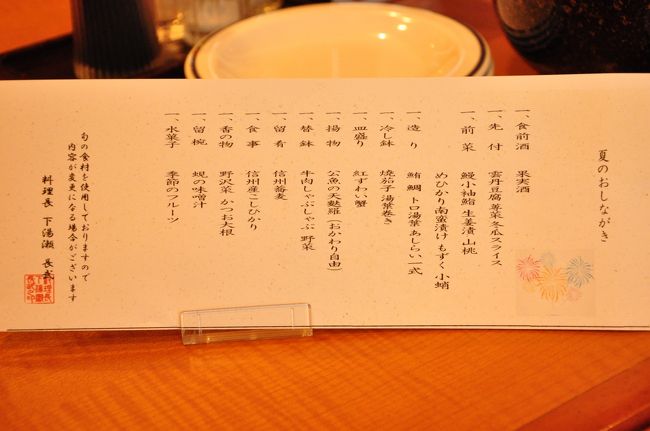 夏のおしながき
一、食前酒　果実酒
一、先　付　雲丹豆腐 蓴菜 冬瓜スライス
一、前　菜　鰻小袖鮨 生姜漬 山桃
めひかり南蛮漬け もずく 小蛸
一、造　り　鮪 鯛 トロ湯葉 あしらい一式
一、冷し鉢　焼茄子 湯葉巻き
一、皿盛り　紅ずわい蟹
一、揚　物　公魚の天麩羅（おかわり自由）
一、替　鉢　牛肉しゃぶしゃぶ 野菜
一、留　肴　信州蕎麦
一、食　事　信州産こしひかり
一、香の物　野沢菜 かつお大根
一、留　椀　蜆の味噌汁
一、水菓子　季節のフルーツ
旬の食材を使用しておりますので
内容が変更になる場合がございます
料理長　下湯瀬　長武